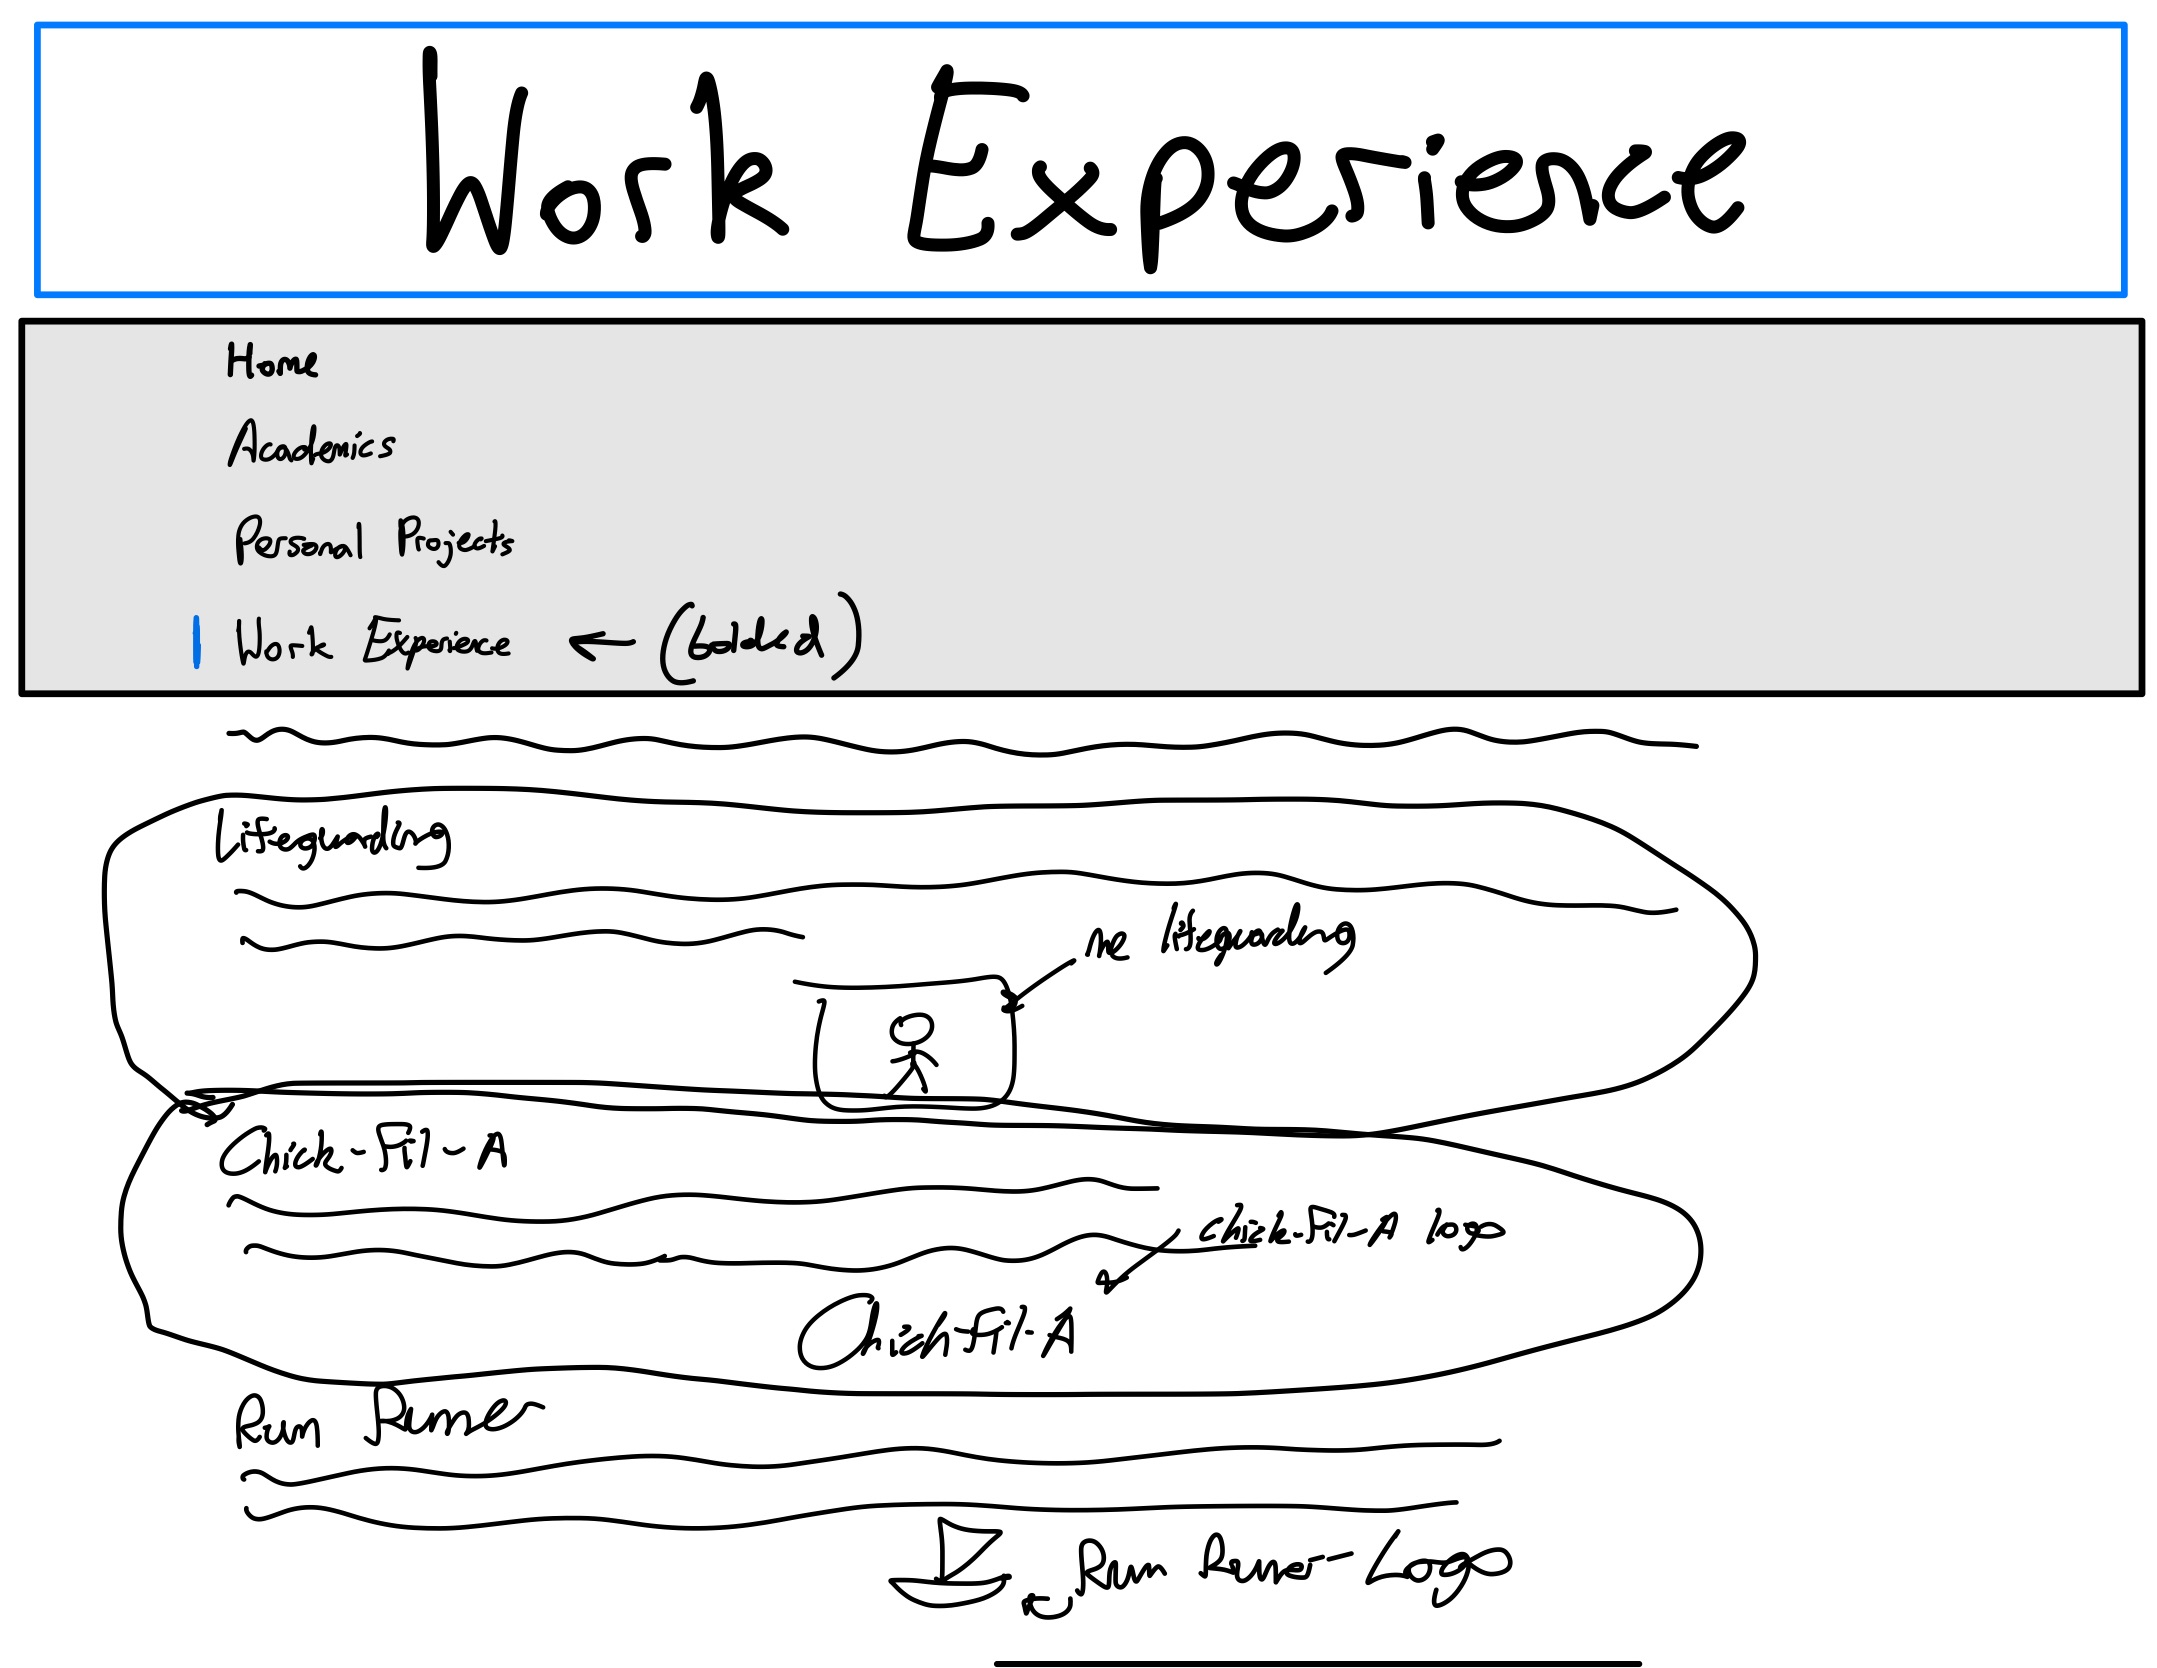 Work Experience
Home
Academics
Personal Projects
Work Experience ← (Bolded)
Lifeguarding
me lifeguarding
Chick-Fil-A
Chick-Fil-A Logo
Chick-Fil-A
Rum Runner
Rum Runner Logo